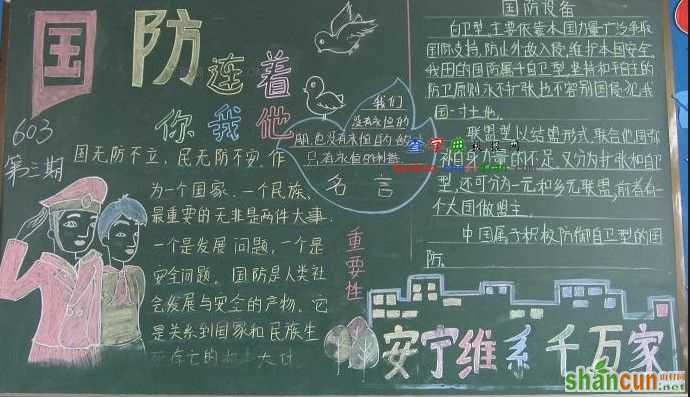 国防连着
你我他
603
第三期
国无防不立，民无防不安，作
为一个国家、一个民族，
最重要的无非是两件大事.
一个是发展问题，一个是
安全问题。国防是人类社
会发展与安全的产物。它
是关系到国家和民族生
重要性
我们
没有永恒的
朋，也没有永恒的
只有永恒的利益
名言
国防设备
自卫型，主要依靠本国力量广泛争取
国际支持，防止外敌入侵，维护本国安全，
我国的国防属于自卫型，坚持和平自主的
防卫原则永不扩张也不容别国侵犯我
国一寸土地。
联盟型以结盟形式联合他国弥
补自身力量的不足又分为扩张和自卫
型，还可分为一元和多元联盟，前者有一
个大国做盟主。
中国属于积极防御自卫型的国
防.
安宁维系千万家
查字典
shancun
山村网
.net